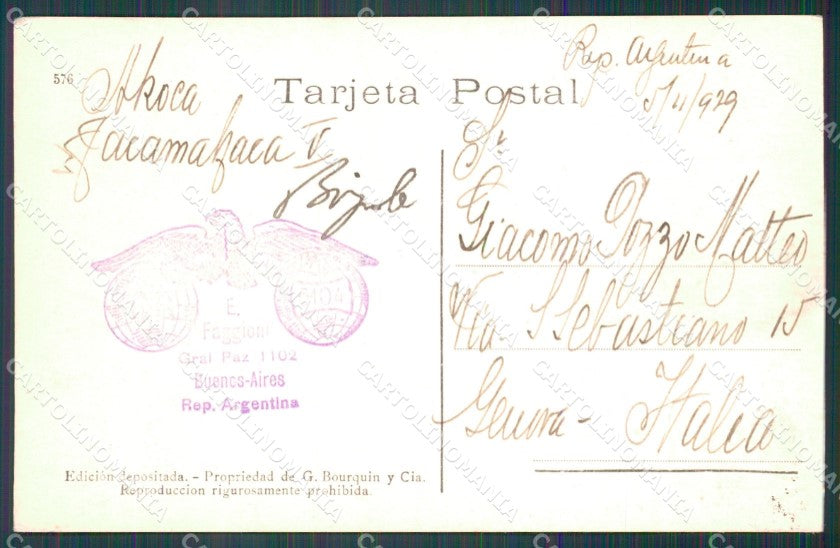 576
Tarjeta Postal
Rep. Argentina
5/4/929
Sr.
Giacomo Pozzo Matteo
Via S Sebastiano 15
Genova - Italia
E.
Faggioni
Gral Paz 1102
Buenos-Aires
Rep. Argentina
Edición depositada. - Propriedad de G. Bourquin y Cia.
Reproduccion rigurosamente prohibida.
CARTOLINOMANIA